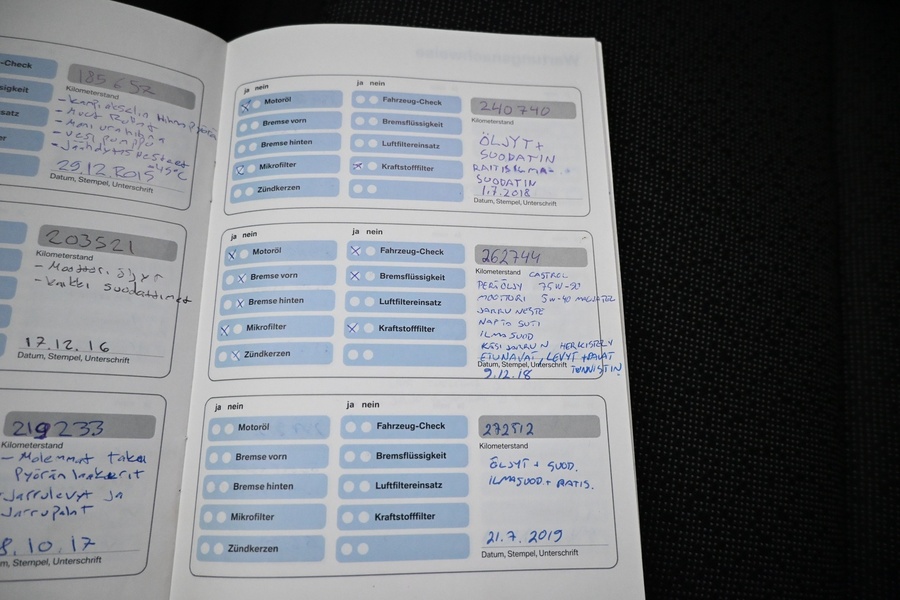 -Check
sigkeit
satz
er
185 652
Kilometerstand
29.12.2015
Datum, Stempel, Unterschrift
203521
Kilometerstand
- Moottori öljyt
- Kaikki suodattimet
17.12.16
Datum, Stempel, Unterschrift
219233
Kilometerstand
- Molemmat taka
Pyörän laakerit
- Jarrulevyt ja
Jarrupalat
8.10.17
m, Stempel, Unterschrift
ja nein
Motoröl
Bremse vorn
Bremse hinten
Mikrofilter
Zündkerzen
ja nein
Fahrzeug-Check
Bremsflüssigkeit
Luftfiltereinsatz
Kraftstofffilter
240740
Kilometerstand
ÖLJYT +
SUODATIN
RAITISILMA-
SUODATIN
1.7.2018
Datum, Stempel, Unterschrift
ja nein
Motoröl
Bremse vorn
Bremse hinten
Mikrofilter
Zündkerzen
ja nein
Fahrzeug-Check
Bremsflüssigkeit
Luftfiltereinsatz
Kraftstofffilter
262744
Kilometerstand CASTROL
PERÄÖLJY 75W-90
MOOTTORI 5W-40
JARRU NESTE
NAFTA SUTI
ILMA SUOD
KÄSI JARRUN HERKISTELY
ETUNAVAT, LEVYT + PALAT
Datum, Stempel, Unterschrift TUNNISTIN
9.12.18
ja nein
Motoröl
Bremse vorn
Bremse hinten
Mikrofilter
Zündkerzen
ja nein
Fahrzeug-Check
Bremsflüssigkeit
Luftfiltereinsatz
Kraftstofffilter
272512
Kilometerstand
ÖLJYT + SUOD.
ILMASUOD. + RATIS.
21.7.2019
Datum, Stempel, Unterschrift